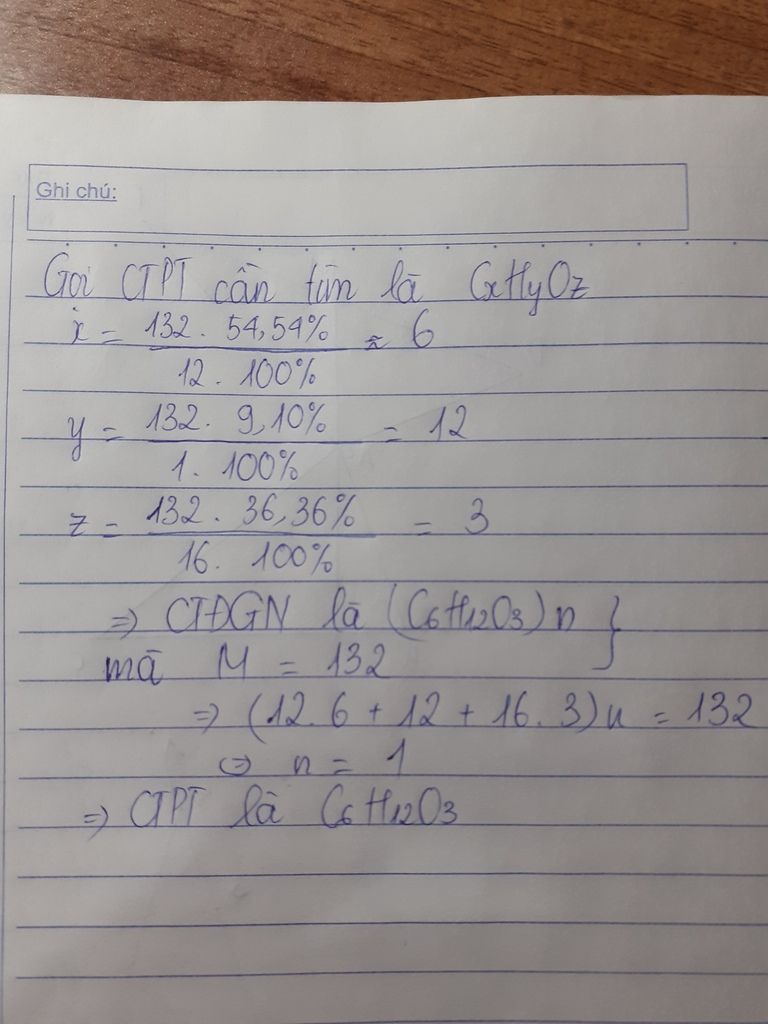 Ghi chú:
Gọi CTPT cần tìm là CxHyOz
x = 132. 54,54% / 12. 100% ≈ 6
y = 132. 9,10% / 1. 100% = 12
z = 132. 36,36% / 16. 100% = 3
=> CTĐGN là (C6H12O3)n }
mà M = 132
=> (12.6 + 12 + 16.3)n = 132
<=> n = 1
=> CTPT là C6H12O3